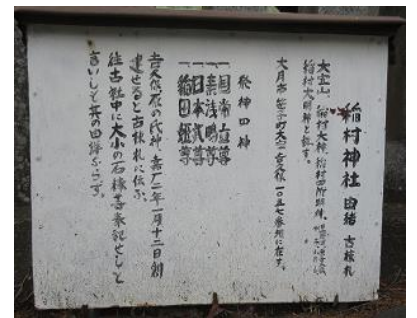 稲村神社 由緒 古棟札
大宝山、稲村大権、稲村四所明神、
稲村大明神と称す。
大月市笹子町大字吉久保一〇五七番地に在す。
祭神四神
一国常立尊
一素浅嗚尊
一日本武尊
一稲田姫尊
吉久保区の氏神 嘉广二年一月十二日創
建せると古棟札に伝ふ
往古社中に大小の石棒を奉祀せしと
言いしと其の由緒ならず。